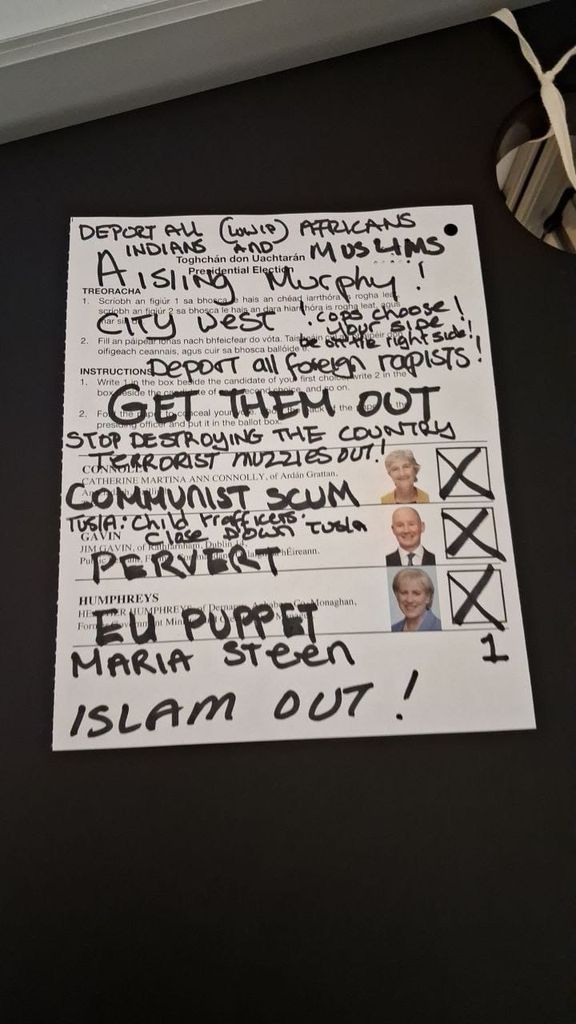 DEPORT ALL (LOW IP) AFRICANS
INDIANS AND MUSLIMS
Toghchán don Uachtarán
Presidential Election
AISLING MURPHY!
TREORACHA
1. Scríobh an figiúr 1 sa bhosca le hais an chéad iarrthóra is rogha leat,
scríobh an figiúr 2 sa bhosca le hais an dara hiarrthóra is rogha leat, agus
mar sin
CITY WEST ! COPS CHOOSE!
YOUR SIDE
be on the right side!
2. Fill an páipéar ionas nach bhfeicfear do vóta. Taispeáin
oifigeach ceannais, agus cuir sa bhosca ballóide é.
Deport all foreign rapists!
INSTRUCTIONS
1. Write 1 in the box beside the candidate of your first choice, write 2 in the
box beside the candidate of your second choice, and so on.
GET THEM OUT
2. Fold the paper to conceal your vote. the
presiding officer and put it in the ballot box.
STOP DESTROYING THE COUNTRY
TERRORIST MUZZIES OUT!
CONNOLLY
CATHERINE MARTINA ANN CONNOLLY, of Ardán Grattan,
COMMUNIST SCUM
X
TUSLA: Child Traffickers.
Close Down Tusla
GAVIN
JIM GAVIN, of Rathfarnham, Dublin
hÉireann.
PERVERT
X
HUMPHREYS
HEATHER HUMPHREYS, of Co. Monaghan,
Former Government Minister
EU PUPPET
X
MARIA STEEN 1
ISLAM OUT!